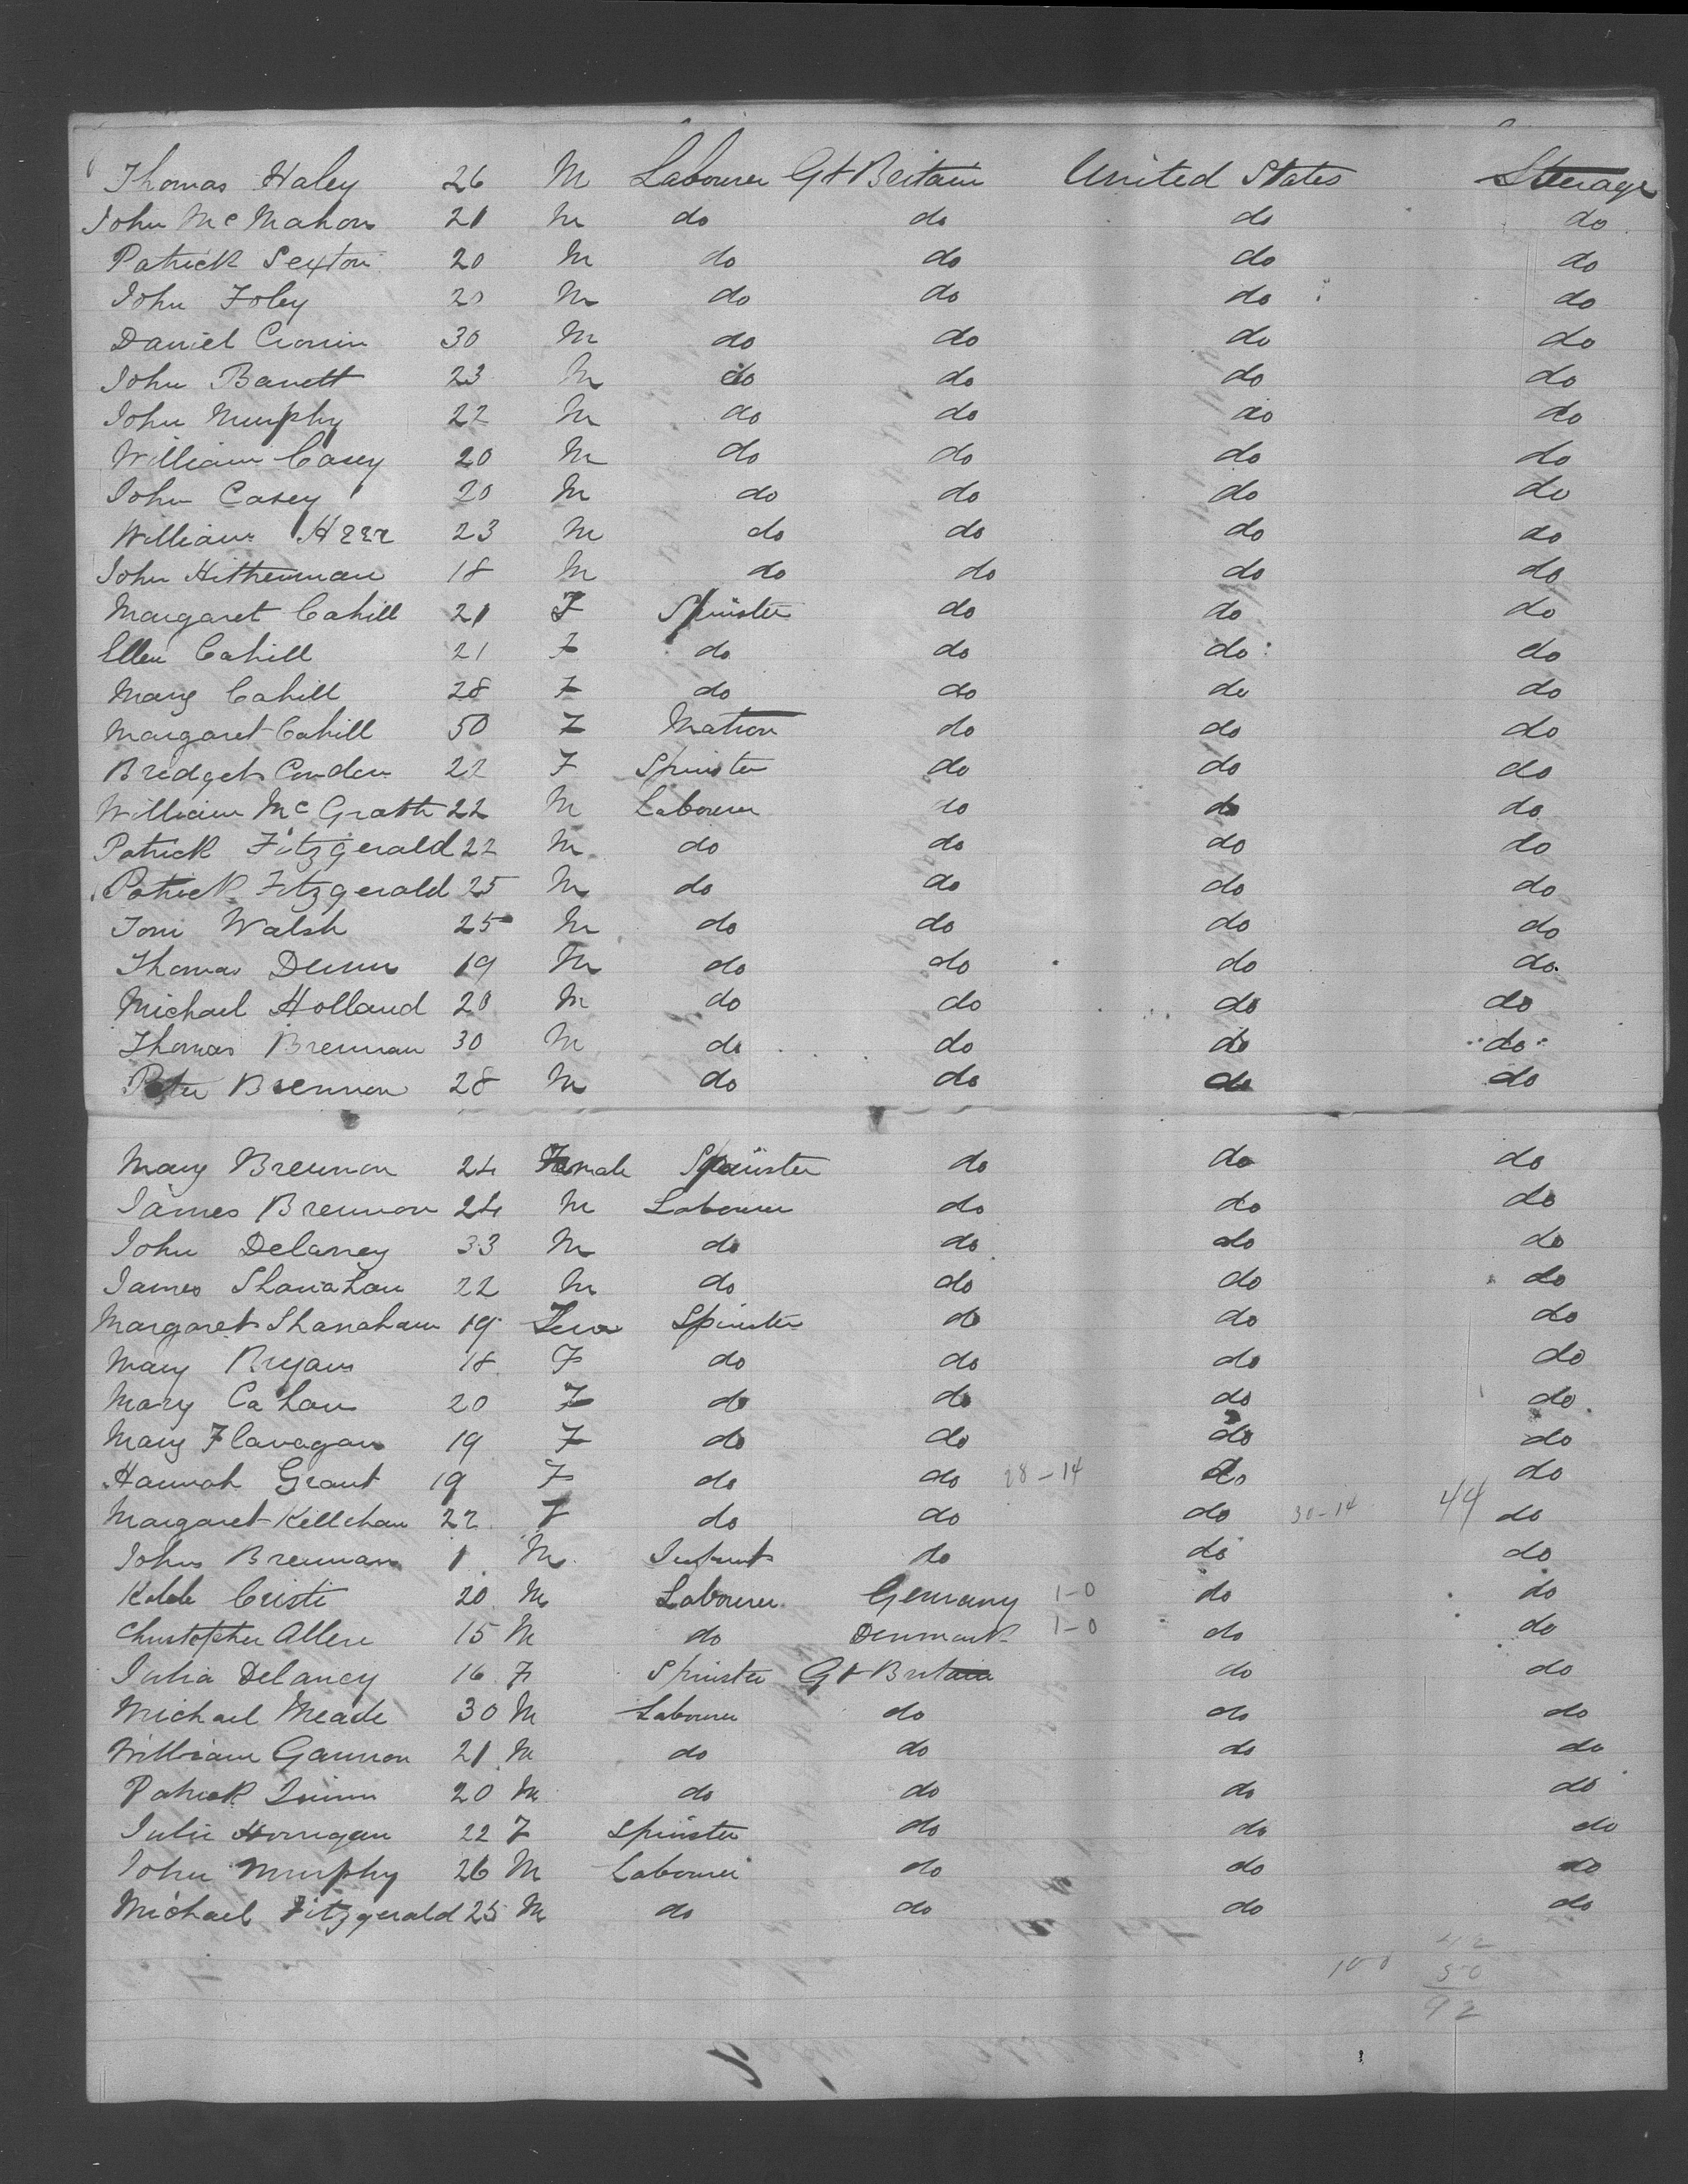 Thomas Haley 26 M Labourer Gt Britain United States Steerage
John McMahon 21 M do do do do
Patrick Sexton 20 M do do do do
John Foley 20 M do do do do
Daniel Cronin 30 M do do do do
John Barrett 23 M do do do do
John Murphy 22 M do do do do
William Casey 20 M do do do do
John Casey 20 M do do do do
William 23 M do do do do
John 18 M do do do do
Margaret Cahill 21 F Spinster do do do
Ellen Cahill 21 F do do do do
Mary Cahill 28 F do do do do
Margaret Cahill 50 F Matron do do do
Bridget Condon 22 F Spinster do do do
William McGrath 22 M Labourer do do do
Patrick Fitzgerald 22 M do do do do
Patrick Fitzgerald 25 M do do do do
Tom Walsh 25 M do do do do
Thomas Dunn 19 M do do do do
Michael Holland 20 M do do do do
Thomas Brennan 30 M do do do do
Peter Brennon 28 M do do do do
Mary Brennon 24 Female Spinster do do do
James Brennon 24 M Labourer do do do
John Delaney 33 M do do do do
James Shanahan 22 M do do do do
Margaret Shanahan 19 Fem Spinster do do do
Mary Bryans 18 F do do do do
Mary Cahan 20 F do do do do
Mary Flanagan 19 F do do do do
Hannah Grant 19 F do do 28-14 do do
Margaret Kellehan 22 F do do do 30-14 44 do
John Brennan 1 M Infant do do do
Cristi 20 M Labourer Germany 1-0 do do
Christopher Allen 15 M do Denmark 1-0 do do
Julia Delaney 16 F Spinster Gt Britain do do
Michael Meade 30 M Labourer do do do
William Gannon 21 M do do do do
Patrick Quinn 20 M do do do do
Julie Horrigan 22 F Spinster do do do
John Murphy 26 M Labourer do do do
Michael Fitzgerald 25 M do do do do
42
50
92